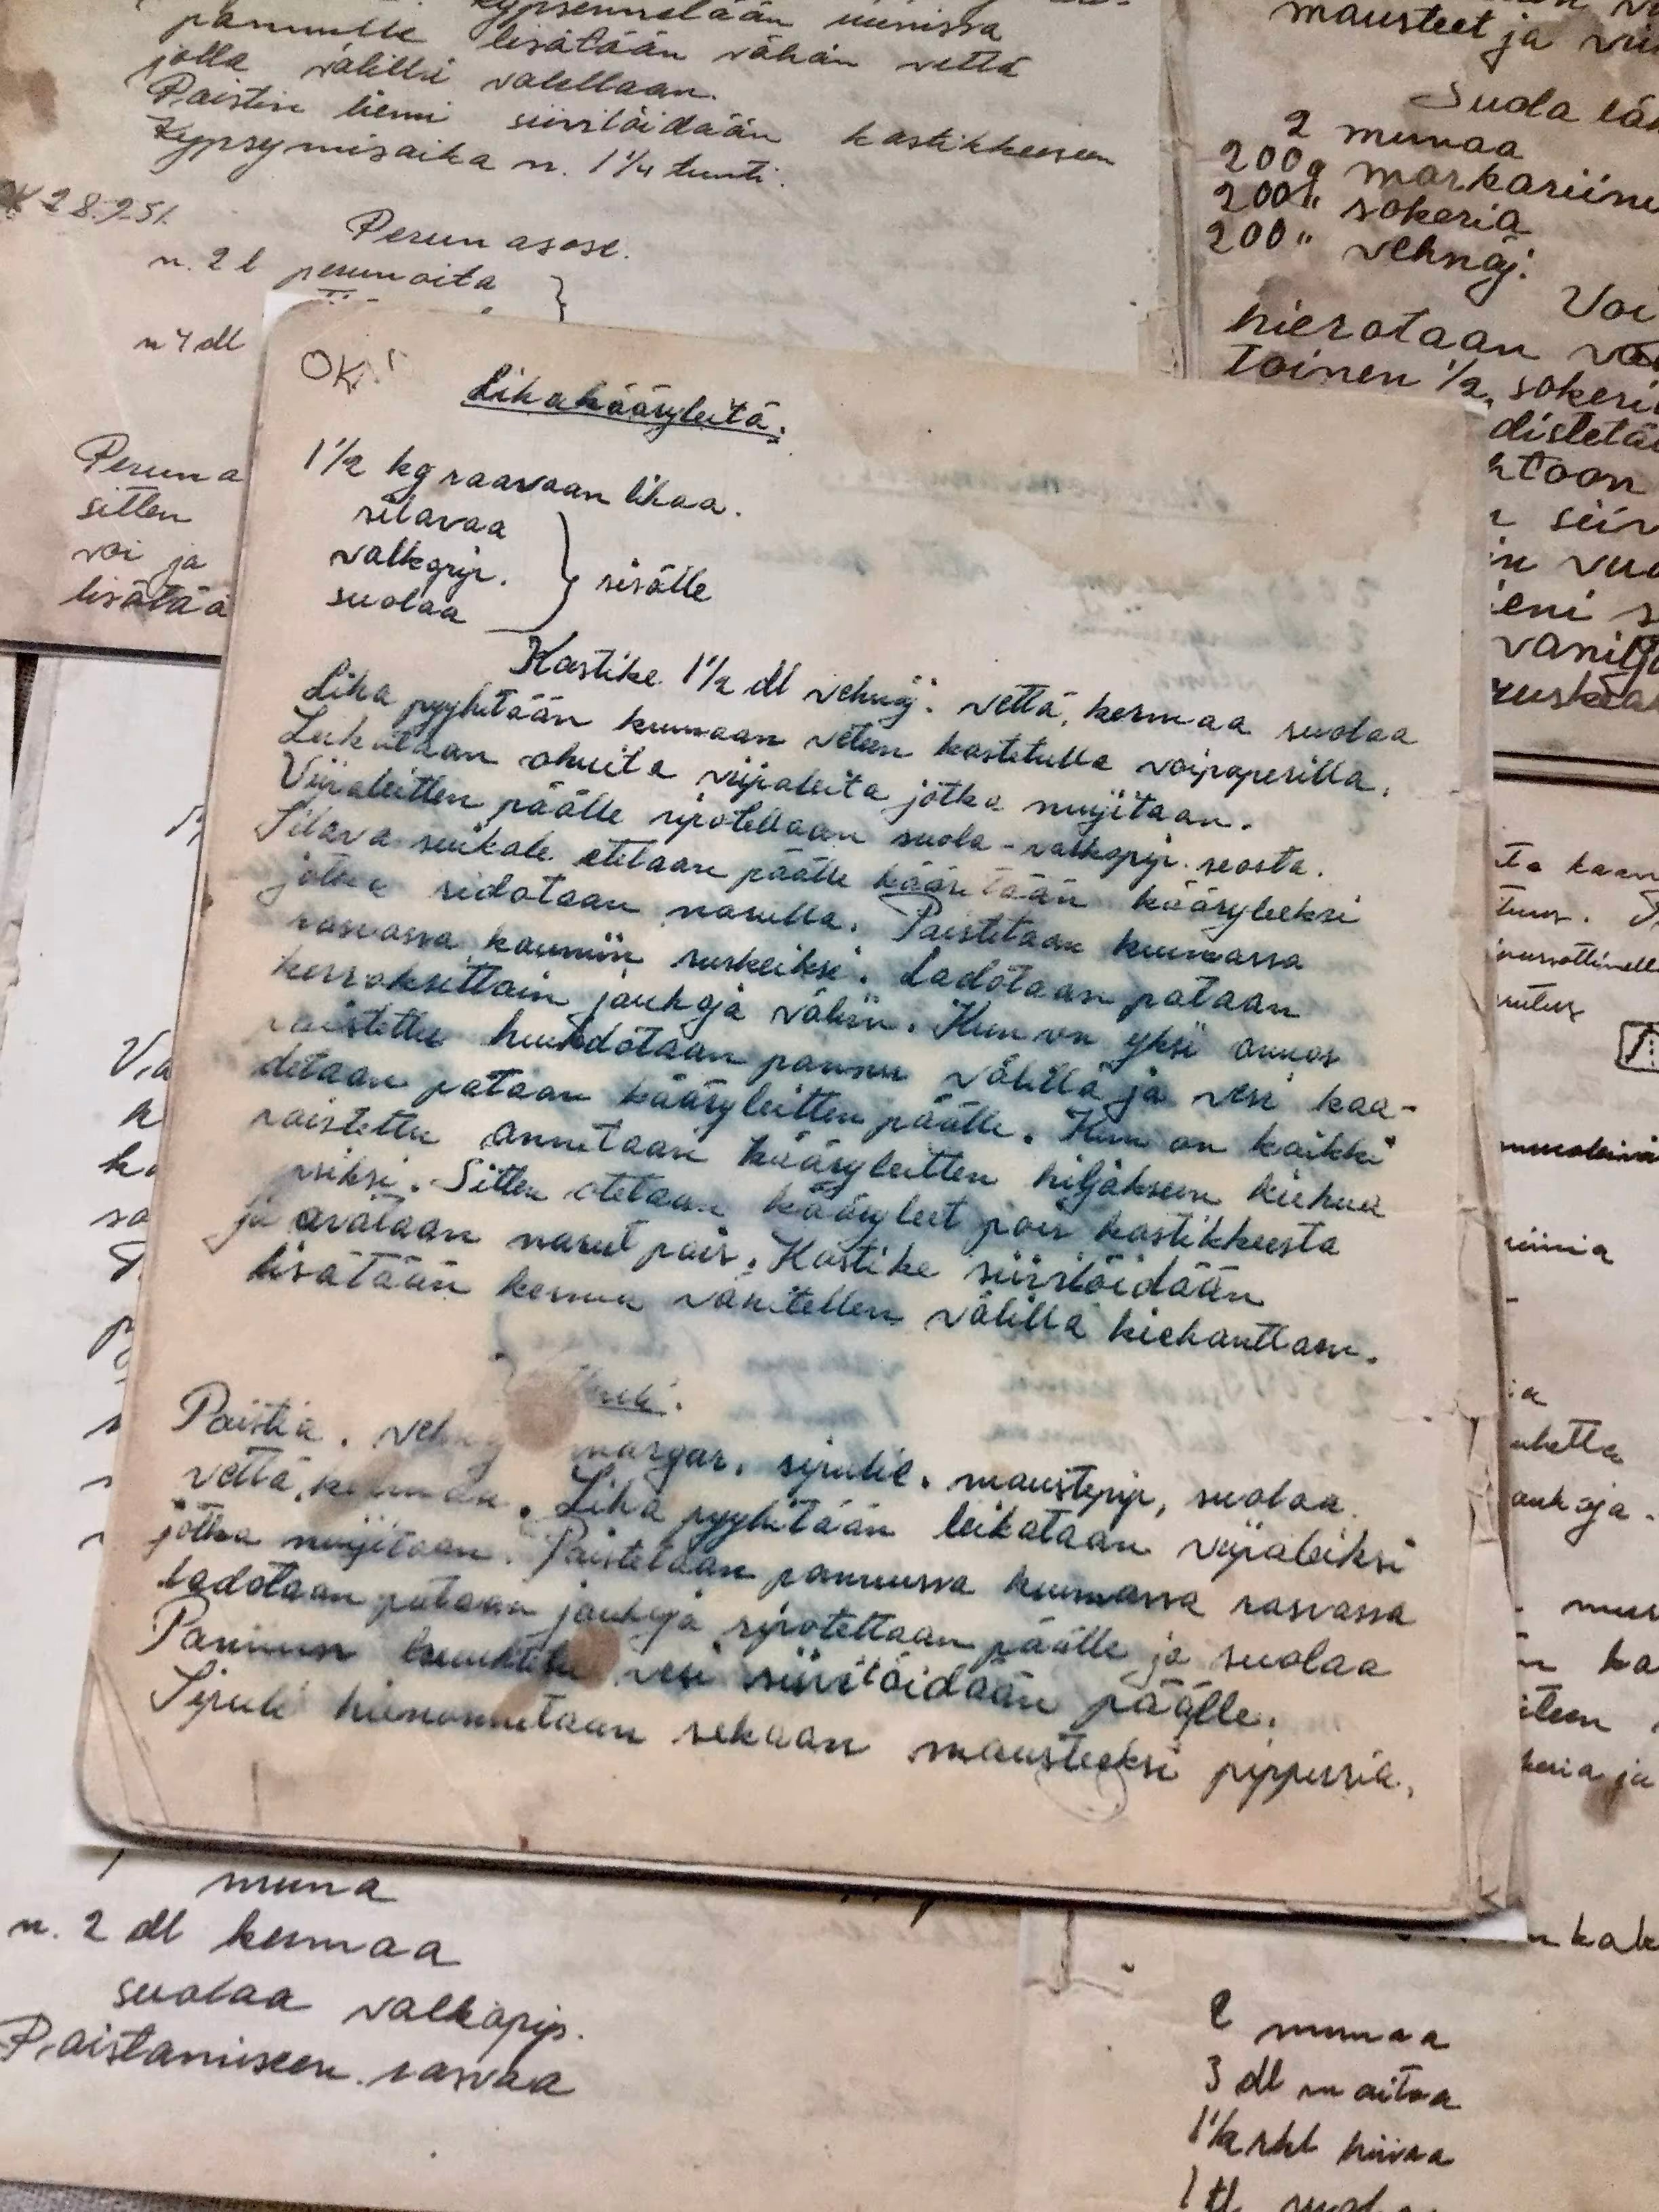 kypsennetään uunissa
pannulle lisätään vähän vettä
jolla välillä valellaan.
Paistin liemi siivilöidään kastikkeeseen
Kypsymisaika n. 1 1/4 tunti.
28.9.51.
Perunasose.
n. 2 l perunoita }
n 4 dl
Peruna
sitten
voi ja
lisätää
mausteet ja
Suola
2 munaa
200 g markariini
200 " sokeria
200 " vehnäj:
Voi
hierotaan
toinen 1/2, sokeri
distetä
htoon
vanilj
ruskea
OK
Lihakääryleitä.
1 1/2 kg raavaan lihaa.
silavaa
valkopip. } sisälle
suolaa
Kastike 1 1/2 dl vehnäj. vettä, kermaa suolaa
Liha pyyhitään kuumaan veteen kastetulla voipaperilla.
Leikataan ohuita viipaleita jotka nuijitaan.
Viipaleitten päälle ripotellaan suola-valkopip. seosta.
Silava suikale otetaan päälle kääritään kääryleeksi
jotka sidotaan narulla. Paistetaan kuumassa
rasvassa kauniin ruskeiksi. Ladotaan pataan
kerroksittain jauhoja väliin. Kun on yksi annos
paistettu huuhdotaan pannu välillä ja vesi kaa-
detaan pataan kääryleitten päälle. Kun on kaikki
paistettu annetaan kääryleitten hiljakseen kiehua
psiksi. Sitten otetaan kääryleet pois kastikkeesta
ja avataan narut pois. Kastike siivilöidään
lisätään kerma vatkatellen välillä kiehauttaen.
Paistia. vehnäj margar. sipulie. maustepip, suolaa
vettä, kermaa. Liha pyyhitään leikataan viipaleiksi
jotka nuijitaan. Paistetaan pannussa kuumassa rasvassa
ladotaan pataan jauhoja ripotettaan päälle ja suolaa
Pannun huuhtelu vesi siivilöidään päälle.
Sipuli hienonnetaan sekaan mausteeksi pippuria.
ta kaan
uhetta
auhoja.
1 muna
n. 2 dl kermaa
suolaa valkopip.
Paistamiseen rasvaa
2 munaa
3 dl maitoa
1 1/2 rkl hiivaa
1 tl